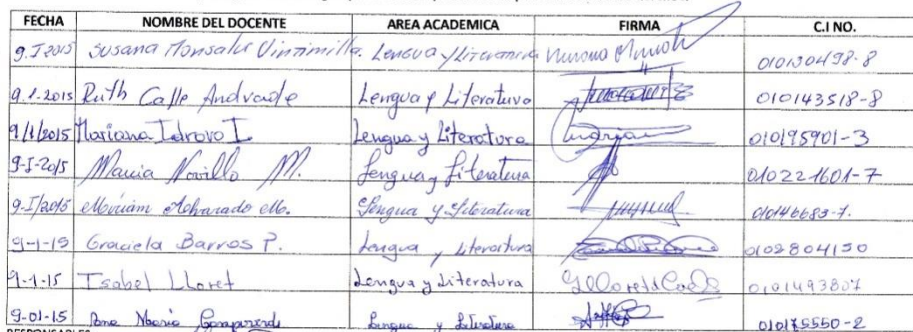 FECHA NOMBRE DEL DOCENTE AREA ACADEMICA FIRMA C.I NO.
9.I2015 Susana Monsalve Vintimilla. Lengua y Literatura 010130498-8
9.1.2015 Ruth Calle Andrade Lengua y Literatura 010143518-8
9/1/2015 Mariana Idrovo I. Lengua y Literatura 010195901-3
9-I-2015 Marcia Novillo M. Lengua y Literatura 010221601-7
9.I/2015 Miriam Alvarado M. Lengua y Literatura 010146683-7.
9-1-15 Graciela Barros P. Lengua y Literatura 0102804150
9-1-15 Isabel Lloret Lengua y Literatura 0101493807
9-01-15 Ana Maria Lengua y Literatura 010175550-2
RESPONSABLES